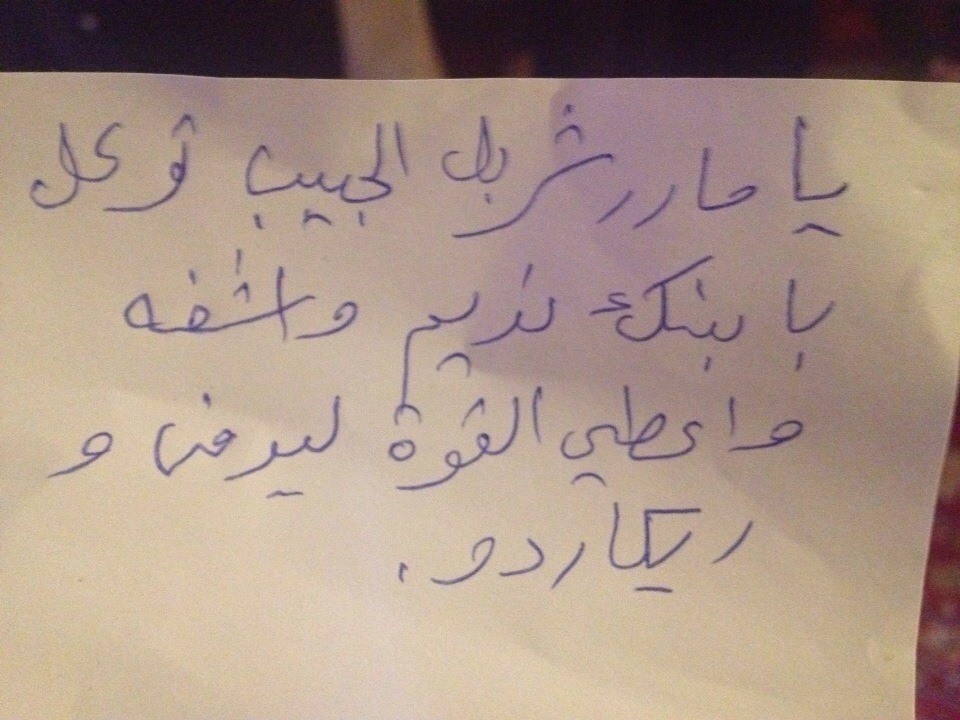 يا مار شربل الحبيب توكل
بابنك نديم واشفه
واعطي القوة ليرفن و
ريكاردو.